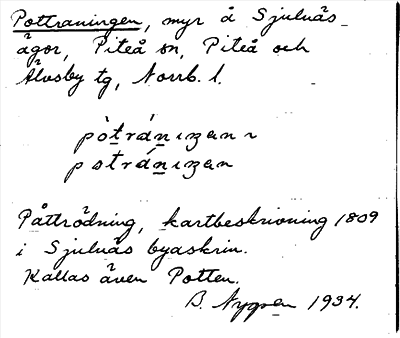 Pottraningen, myr å Sjulnäs
ägor, Piteå sn, Piteå och
Älvsby tg, Norrb. l.
pòtránizan ı
potránizan
Påttrödning, kartbeskrivning 1809
i Sjulnäs byaskrin.
Kallas även Potten.
B. Nygren 1934.